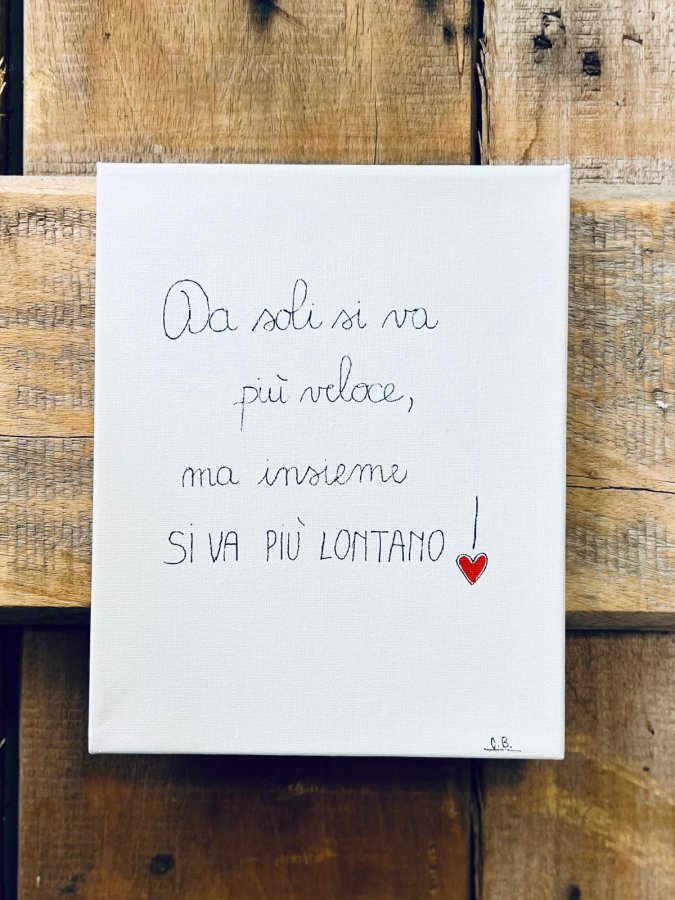 Da soli si va
più veloce,
ma insieme
SI VA PIÙ LONTANO!
C.B.